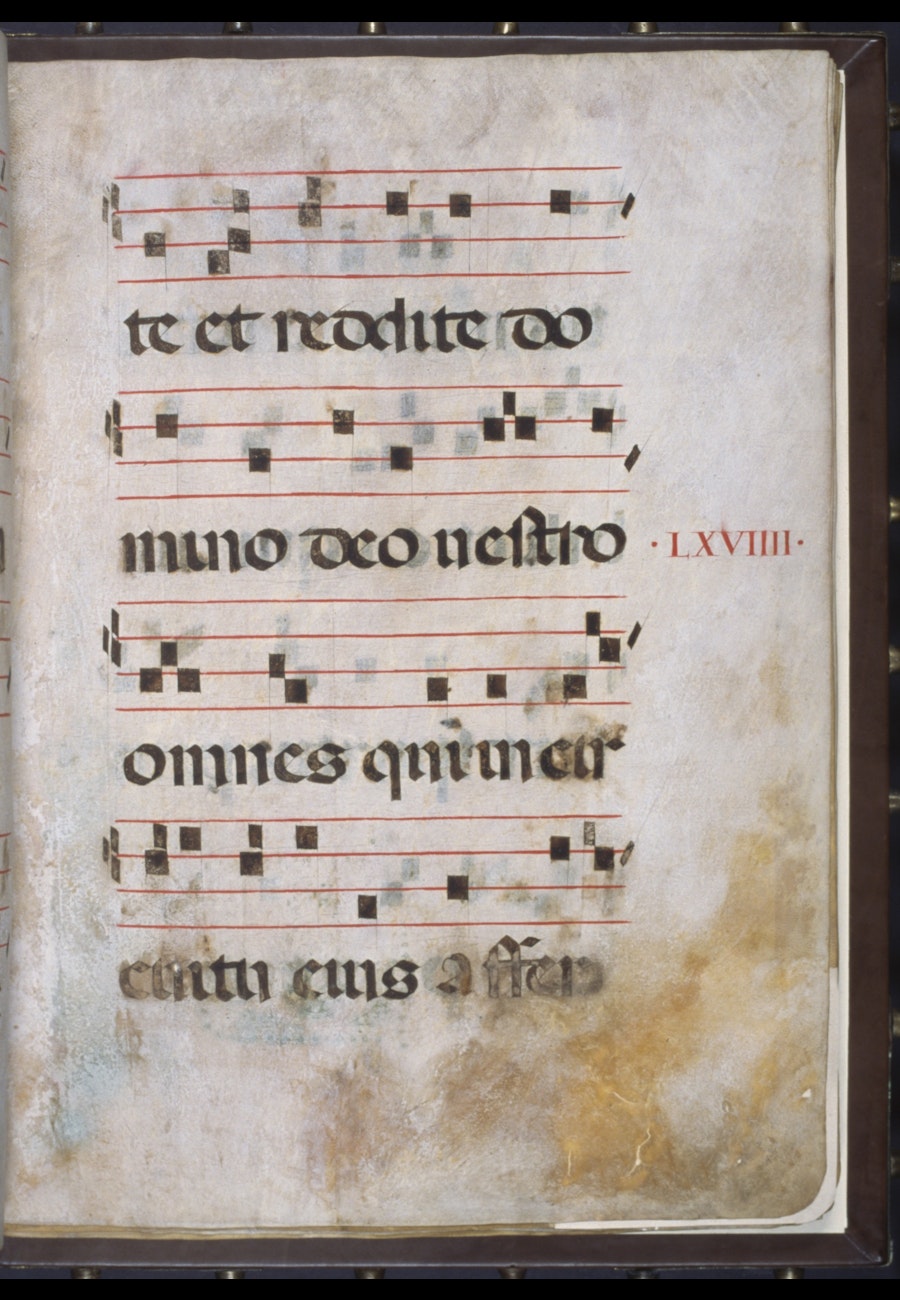 te et reddite do
mino deo nestro
· LXVIIII ·
omnes qui in cir
cuitu eius affer